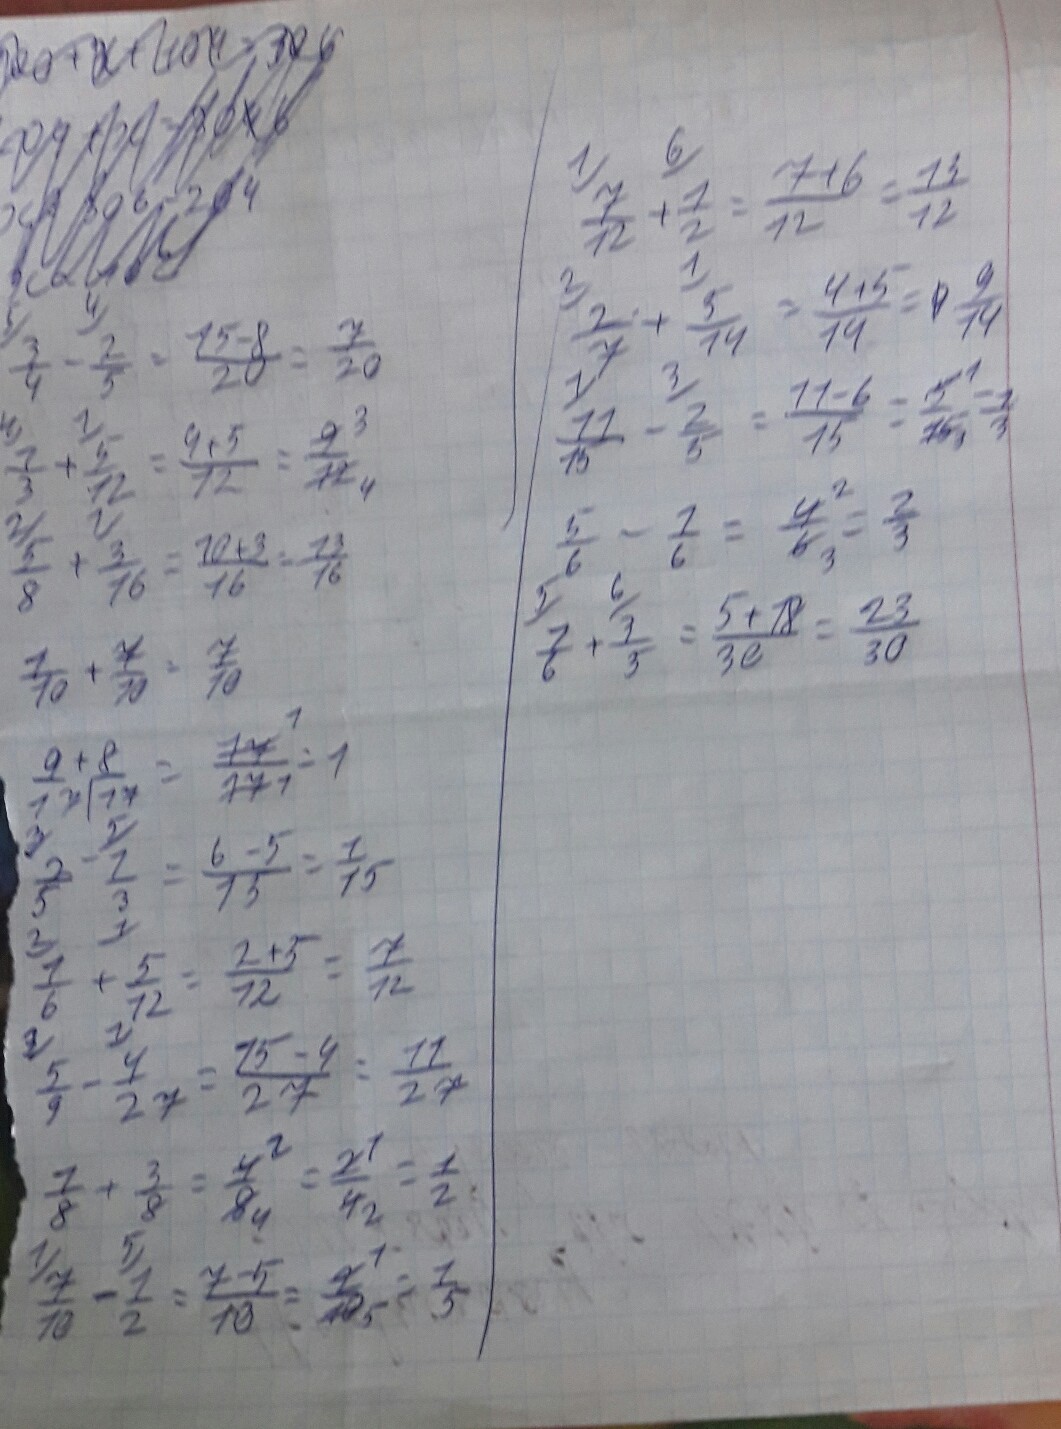 5/ 4/
3/4 - 2/5 = 15-8/20 = 7/20
4/ 1/
1/3 + 5/12 = 4+5/12 = 9/12 3 4
2/ 1/
5/8 + 3/16 = 10+3/16 = 13/16
1/10 + 7/10 = 7/10
9/17 + 8/17 = 17/17 1 1 = 1
3 5
2/5 - 1/3 = 6-5/15 = 1/15
1
1/6 + 5/12 = 2+5/12 = 7/12
5/9 - 4/27 = 15-4/27 = 11/27
1/8 + 3/8 = 4/8 2 4 = 2/4 1 2 = 1/2
1/ 5/
7/10 - 1/2 = 7-5/10 = 2/10 1 5 = 1/5
1/ 6/
7/12 + 1/2 = 7+6/12 = 13/12
2/ 1/
2/7 + 5/14 = 4+5/14 = 9/14
1/ 3/
11/15 - 2/5 = 11-6/15 = 5/15 1 3 = 1/3
5/6 - 1/6 = 4/6 2 3 = 2/3
5/ 6/
1/6 + 3/5 = 5+18/30 = 23/30